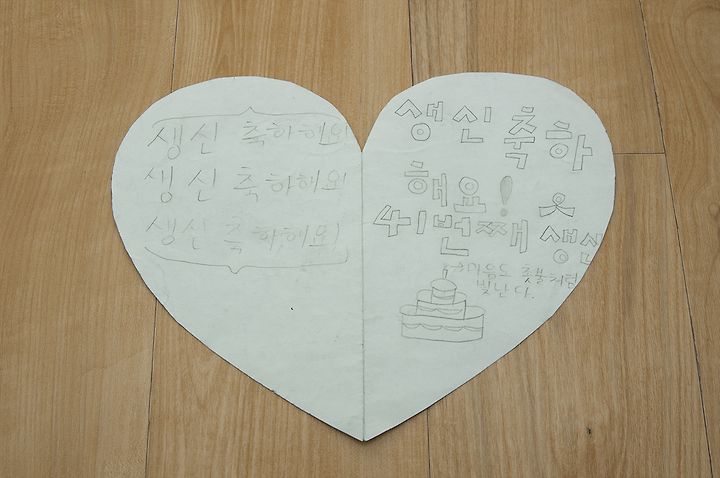 생신 축하해요!
생신 축하해요!
생신 축하해요!
생신축하
해요! ㅊ
41번째 생신
→마음도 촛불처럼
빛난다.